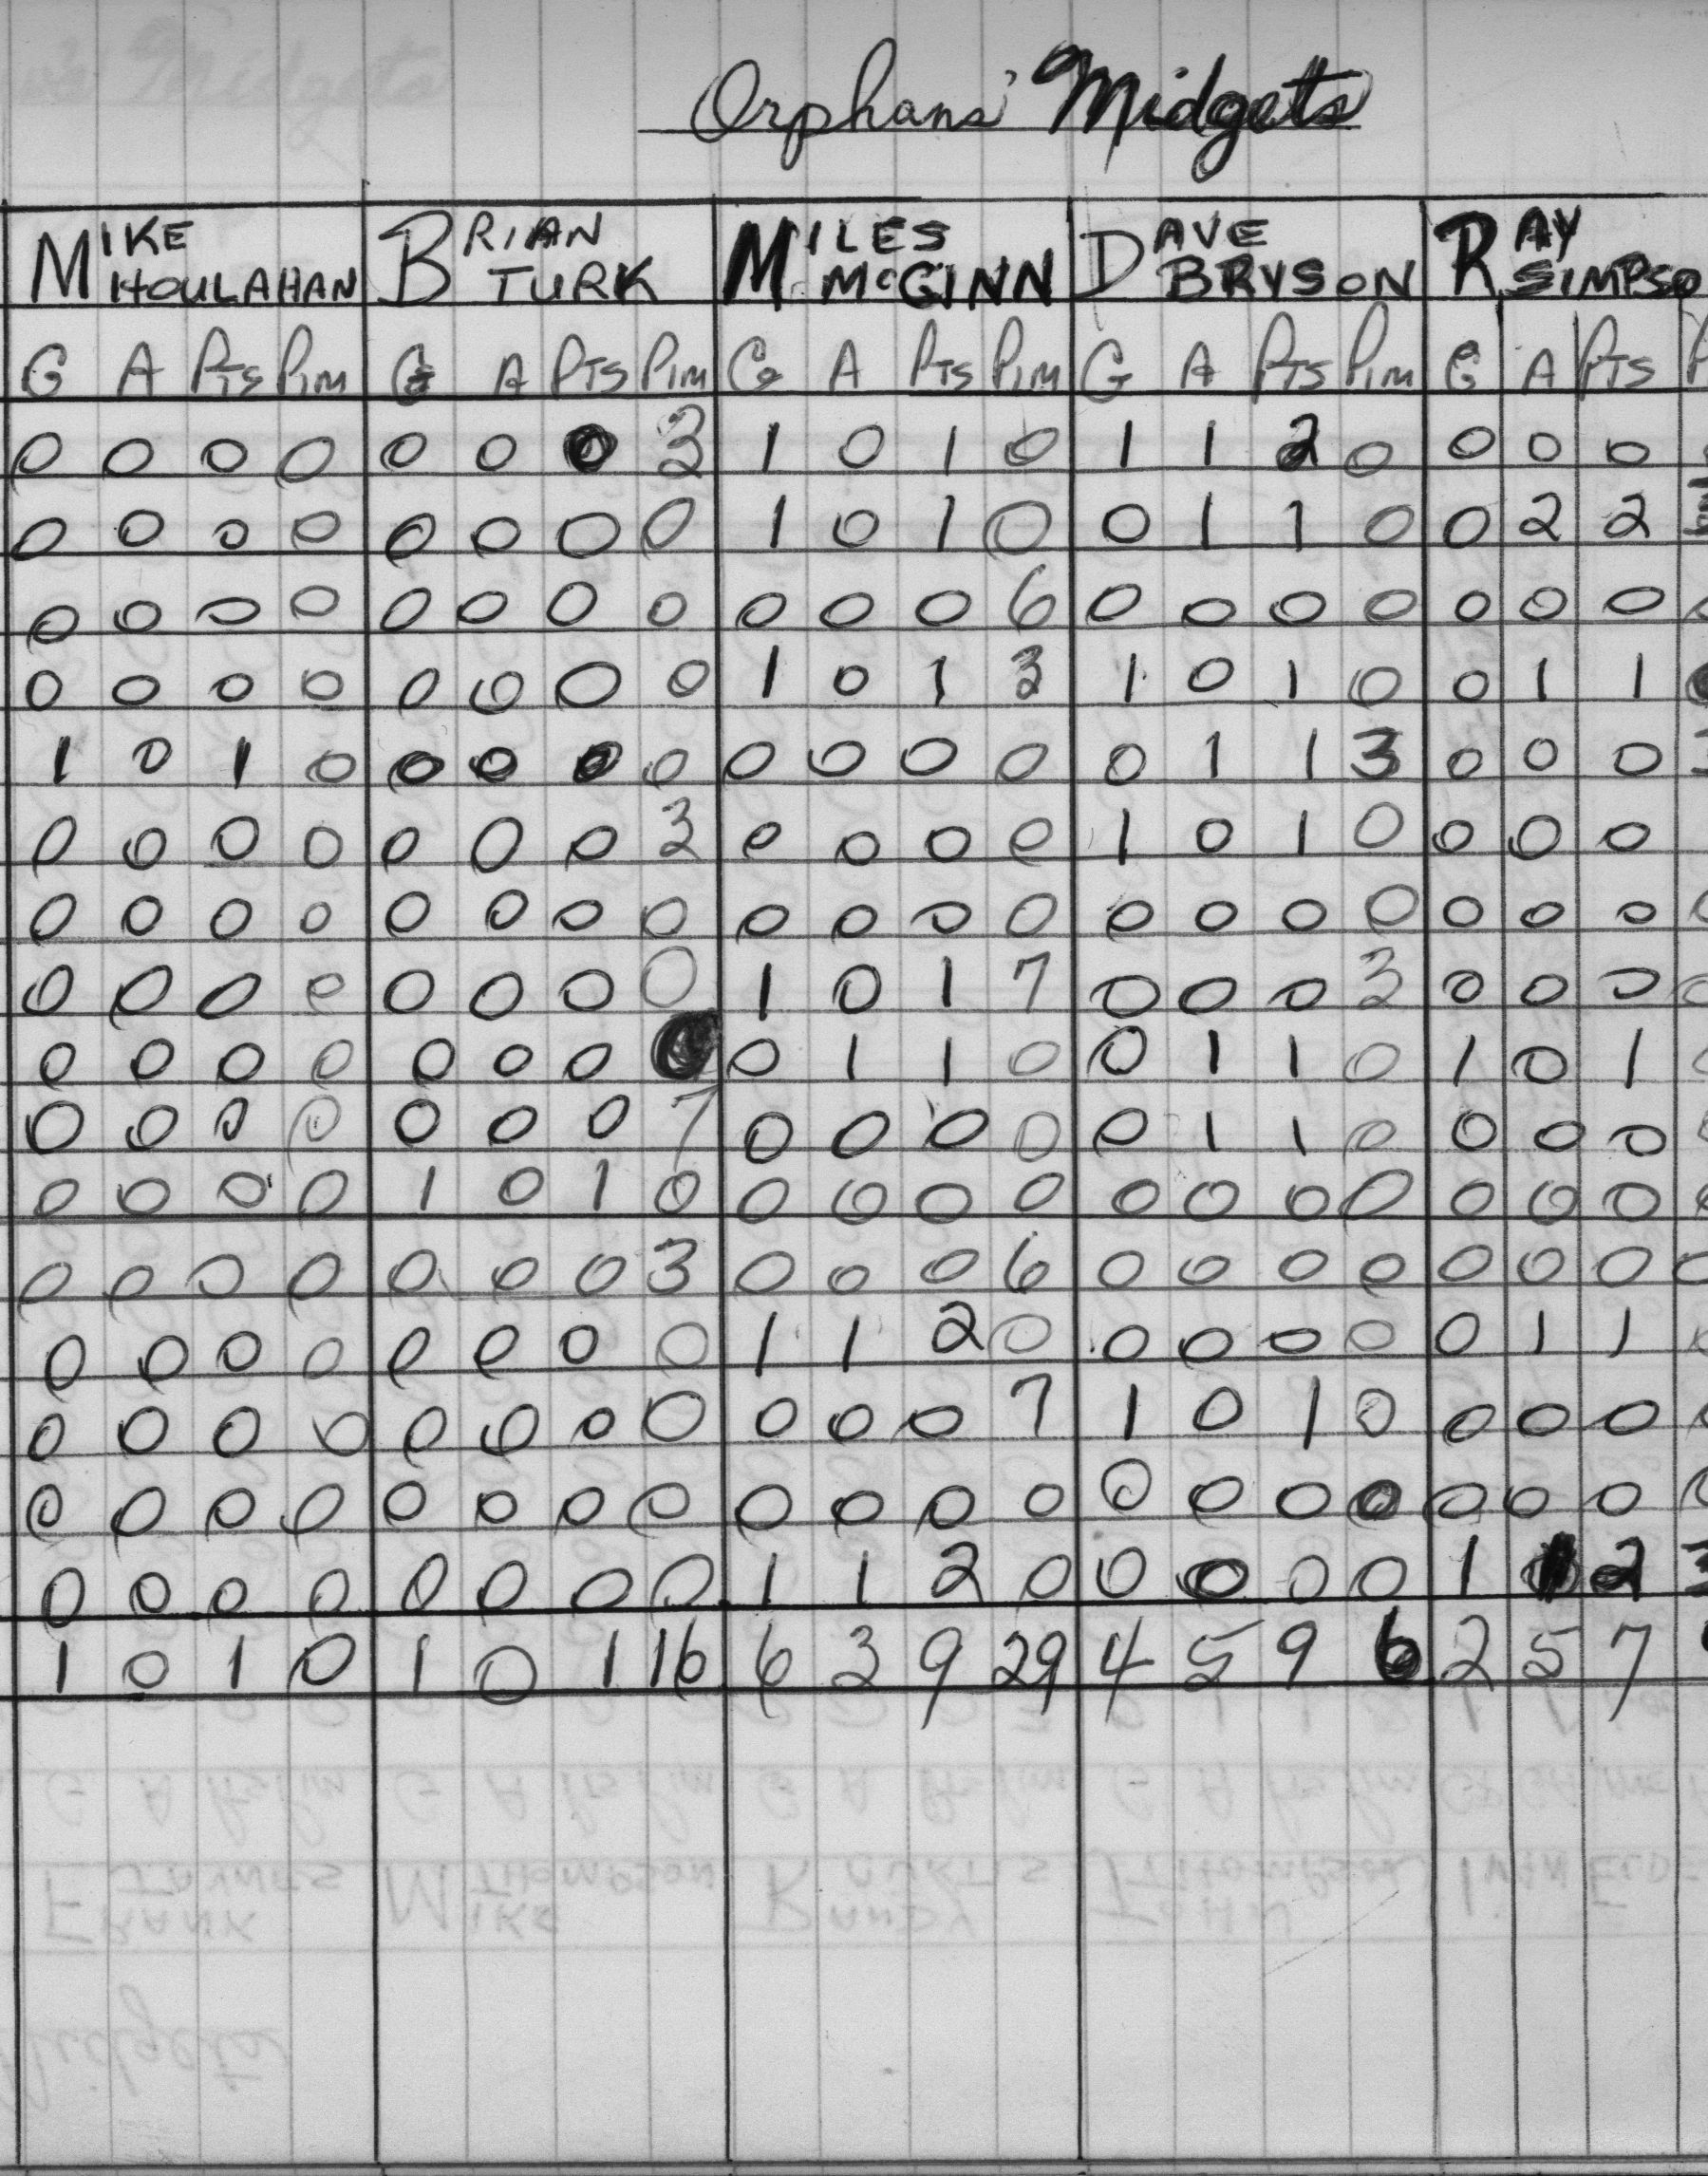 Orphans' Midgets
MIKE HOULAHAN BRIAN TURK MILES McGINN DAVE BRYSON RAY SIMPSO
G A Pts Pim G A Pts Pim G A Pts Pim G A Pts Pim G A Pts P
0 0 0 0 0 0 0 3 1 0 1 0 1 1 2 0 0 0 0
0 0 0 0 0 0 0 0 1 0 1 0 0 1 1 0 0 2 2
0 0 0 0 0 0 0 0 0 0 0 6 0 0 0 0 0 0 0
0 0 0 0 0 0 0 0 1 0 1 3 1 0 1 0 0 1 1
1 0 1 0 0 0 0 0 0 0 0 0 0 1 1 3 0 0 0 3
0 0 0 0 0 0 0 3 0 0 0 0 1 0 1 0 0 0 0
0 0 0 0 0 0 0 0 0 0 0 0 0 0 0 0 0 0 0 0
0 0 0 0 0 0 0 0 1 0 1 7 0 0 0 3 0 0 0 0
0 0 0 0 0 0 0 0 1 1 0 0 1 1 0 1 0 1 0
0 0 0 0 0 0 0 7 0 0 0 0 0 1 1 0 0 0 0 0
0 0 0 0 1 0 1 0 0 0 0 0 0 0 0 0 0 0 0 0
0 0 0 0 0 0 0 3 0 0 0 6 0 0 0 0 0 0 0 0
0 0 0 0 0 0 0 0 1 1 2 0 0 0 0 0 0 1 1 0
0 0 0 0 0 0 0 0 0 0 0 7 1 0 1 0 0 0 0 0
0 0 0 0 0 0 0 0 0 0 0 0 0 0 0 0 0 0 0 0
0 0 0 0 0 0 0 0 1 1 2 0 0 0 0 0 1 1 2 3
1 0 1 0 1 0 1 16 6 3 9 29 4 5 9 6 2 5 7